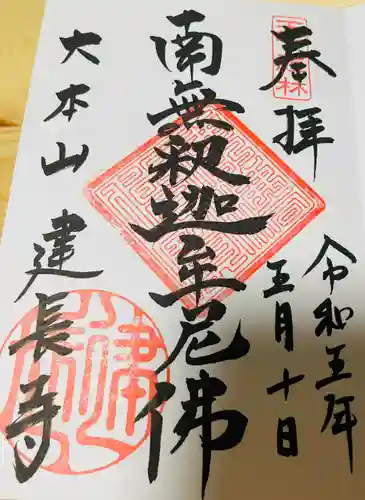 奉拝
令和五年
五月十日
南無釈迦牟尼佛
大本山
建長寺